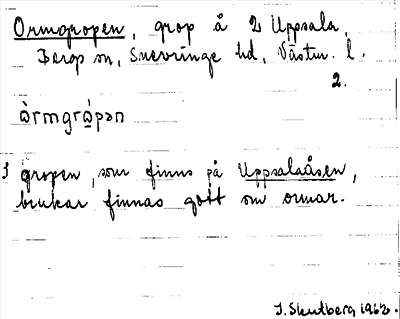 Ormgropen, grop å 2 Uppsala,
Berg sn, Snevringe hd, Västm. l.
2.
ὼrmgrώ̱pən
I gropen, som finns på Uppsalaåsen,
brukar finnas gott om ormar.
J. Skutberg 1962.